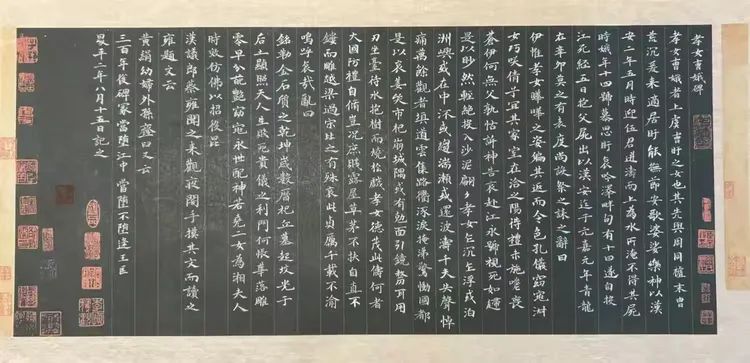 孝女曹娥碑
孝女曹娥者上虞曹盱之女也其先與周同祖末冑
荒沉爰来適居盱能撫節安歌婆娑樂神以漢
安二年五月時迎伍君逆濤而上為水所淹不得其屍
時娥年十四號慕思盱哀吟澤畔旬有十四遂自投
江死經五日抱父屍出以漢安迄于元嘉元年青龍
在辛卯莫之有表度尚設祭之誄之辭曰
伊惟孝女曄曄之姿偏其返而令色孔儀窈窕淑
女巧咲倩兮宜其家室在洽之陽待禮未施嗟喪
蒼伊何無父孰怙訴神告哀赴江永號視死如歸
是以眇然輕絕投入沙泥翩翩孝女乍沉乍浮或泊
洲嶼或在中流或趨湍瀨或還波濤千夫失聲悼
痛萬餘觀者填道雲集路衢流淚掩涕驚慟國都
是以哀姜哭市杞崩城隅或有勀面引鏡剺耳用
刀坐臺待水抱樹而燒於戲孝女德茂此儔何者
大國防禮自脩豈況庶賤露屋草茅不扶自直不
鏤而雕越梁過宋比之有殊哀此貞厲千載不渝
嗚呼哀哉亂曰
銘勒金石質之乾坤歲數曆祀丘墓起墳光于
后土顯照夫人生賤死貴儀之利門何悵華落雕
零早分葩艷窈窕永世配神若堯二女為湘夫人
時效仿佛以招後昆
漢議郎蔡雍聞之来觀夜闇手摸其文而讀之
雍題文云
黃絹幼婦外孫齏臼又云
三百年後碑冢當墮江中當墮不墮逢王叵
昇平二年八月十五日記之